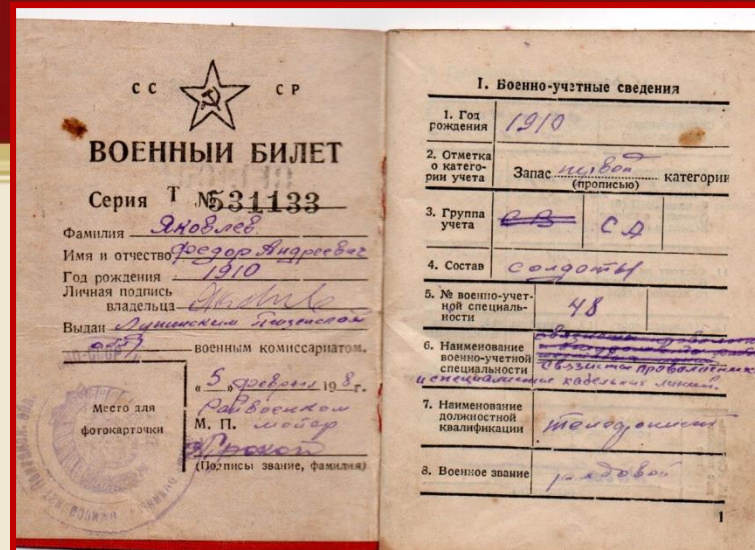 СС СР
ВОЕННЫЙ БИЛЕТ
Серия Т № 531133
Фамилия Яковлев
Имя и отчество Федор Андреевич
Год рождения 1910
Личная подпись
владельца
Выдан Лунинским Пензенской
обл. военным комиссариатом.
«5» февраля 19 8 г.
Райвоенком
М. П. майор
(Подпись звание, фамилия)
Место для
фотокарточки
I. Военно-учетные сведения
1. Год
рождения 1910
2. Отметка
о катего-
рии учета Запас первой категории
(прописью)
3. Группа
учета СВ СА
4. Состав солдаты
5. № военно-учет-
ной специаль-
ности 48
6. Наименование
военно-учетной
специальности
связисты проволочных
и специалисты кабельных линий.
7. Наименование
должностной
квалификации телефонист
8. Военное звание рядовой
1